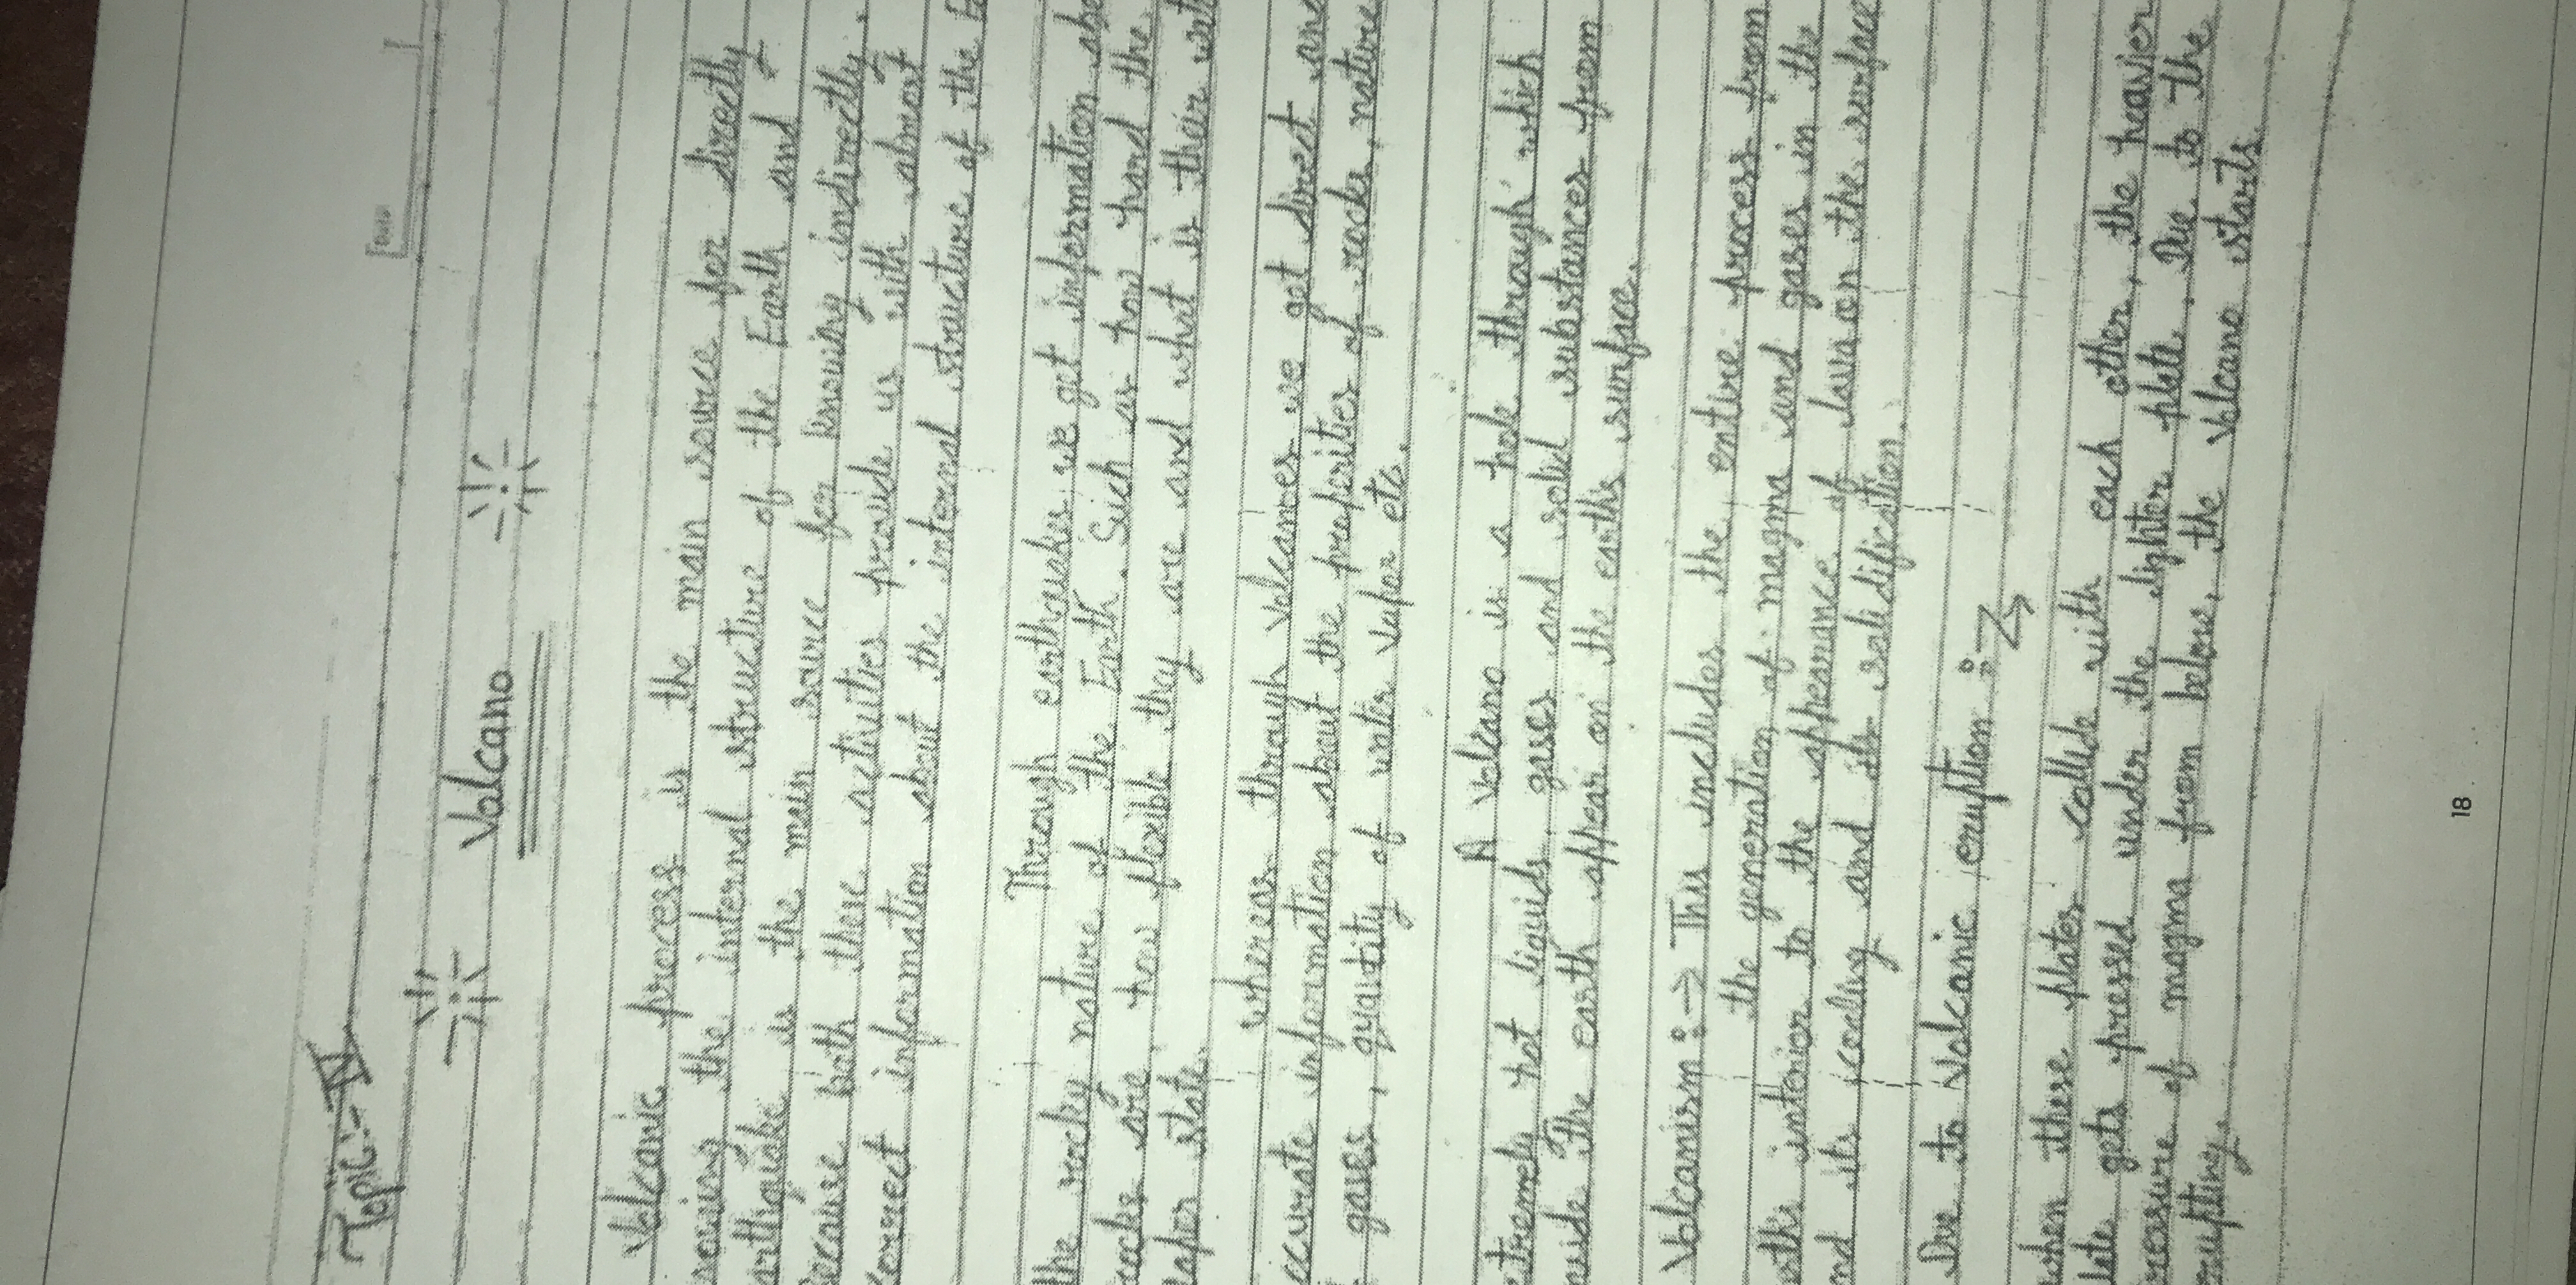 Topic:- IV
Date
Valcano
Volcanic process is the main source for directly
nowing the internal structure of the Earth and
arthquake is the main source for knowing indirectly.
Because both these activities provide us with almost
correct information about the internal structure of the Ea
Through earthquakes we get information abo
the rocky nature of the Earth. Such as how hard the
rocks are how flexible they are and what is their wat
vapor state.
whereas through volcanoes we get direct and
ccurate information about the properities of rocks, nature
f gases, quantity of water vapor etc.
A volcano is a hole through which
xtremely hot liquids, gases and solid substances from
nside the earth appear on the earth's surface.
Volcanism :-> This includes the entire process from
the generation of magma and gases in the
arth's interior to the appearance of lava on the surface
nd its cooling and its solidification.
Due to volcanic eruption :->
when these plates collide with each other, the heavier
late gets pressed under the lighter plate. Due to the
ressure of magma from below, the Volcano starts
rupting.
18